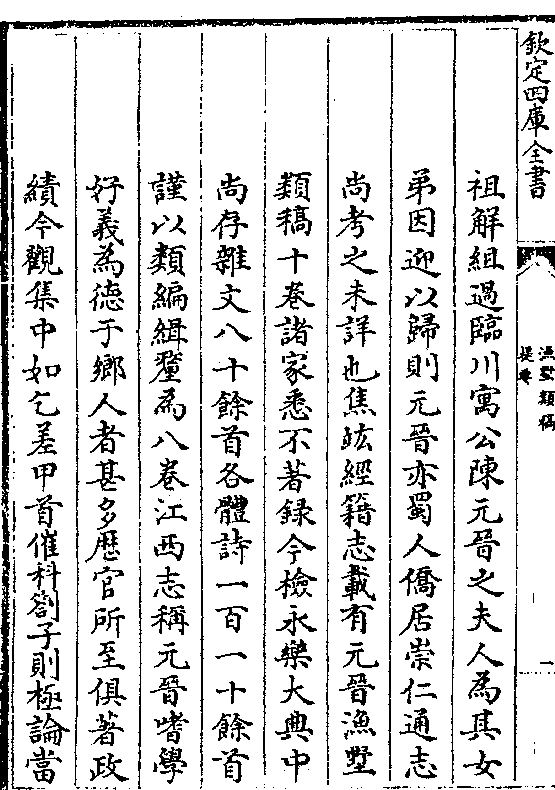 欽定四庫全書
漁墅類稿
提要
一
祖解組過臨川寓公陳元晉之夫人為其女
弟因迎以歸則元晉亦蜀人僑居崇仁通志
尚考之未詳也焦竑經籍志載有元晉漁墅
類稿十卷諸家悉不著録今檢永樂大典中
尚存雜文八十餘首各體詩一百一十餘首
謹以類編緝釐為八卷江西志稱元晉嗜學
好義為徳于鄉人者甚多歴官所至俱著政
績今觀集中如乞差甲首催科劄子則極論當